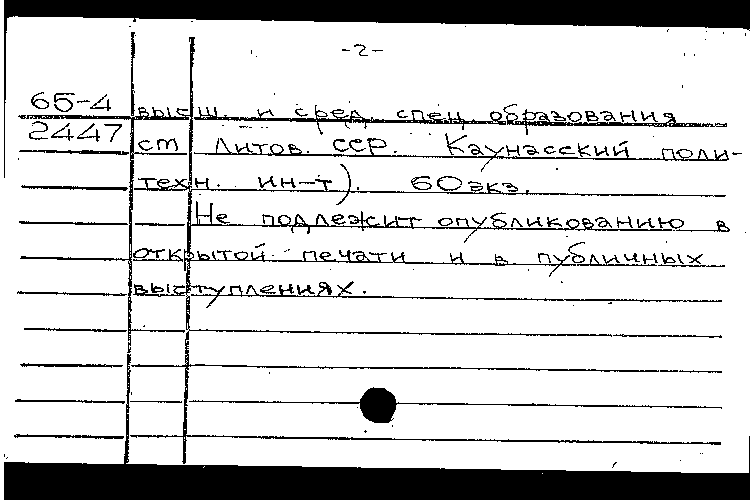 -2-
65-4 высш. и сред. спец. образования
2447 ст Литов. ССР. Каунасский поли-
техн. ин-т). 60экз.
Не подлежит опубликованию в
открытой печати и в публичных
выступлениях.